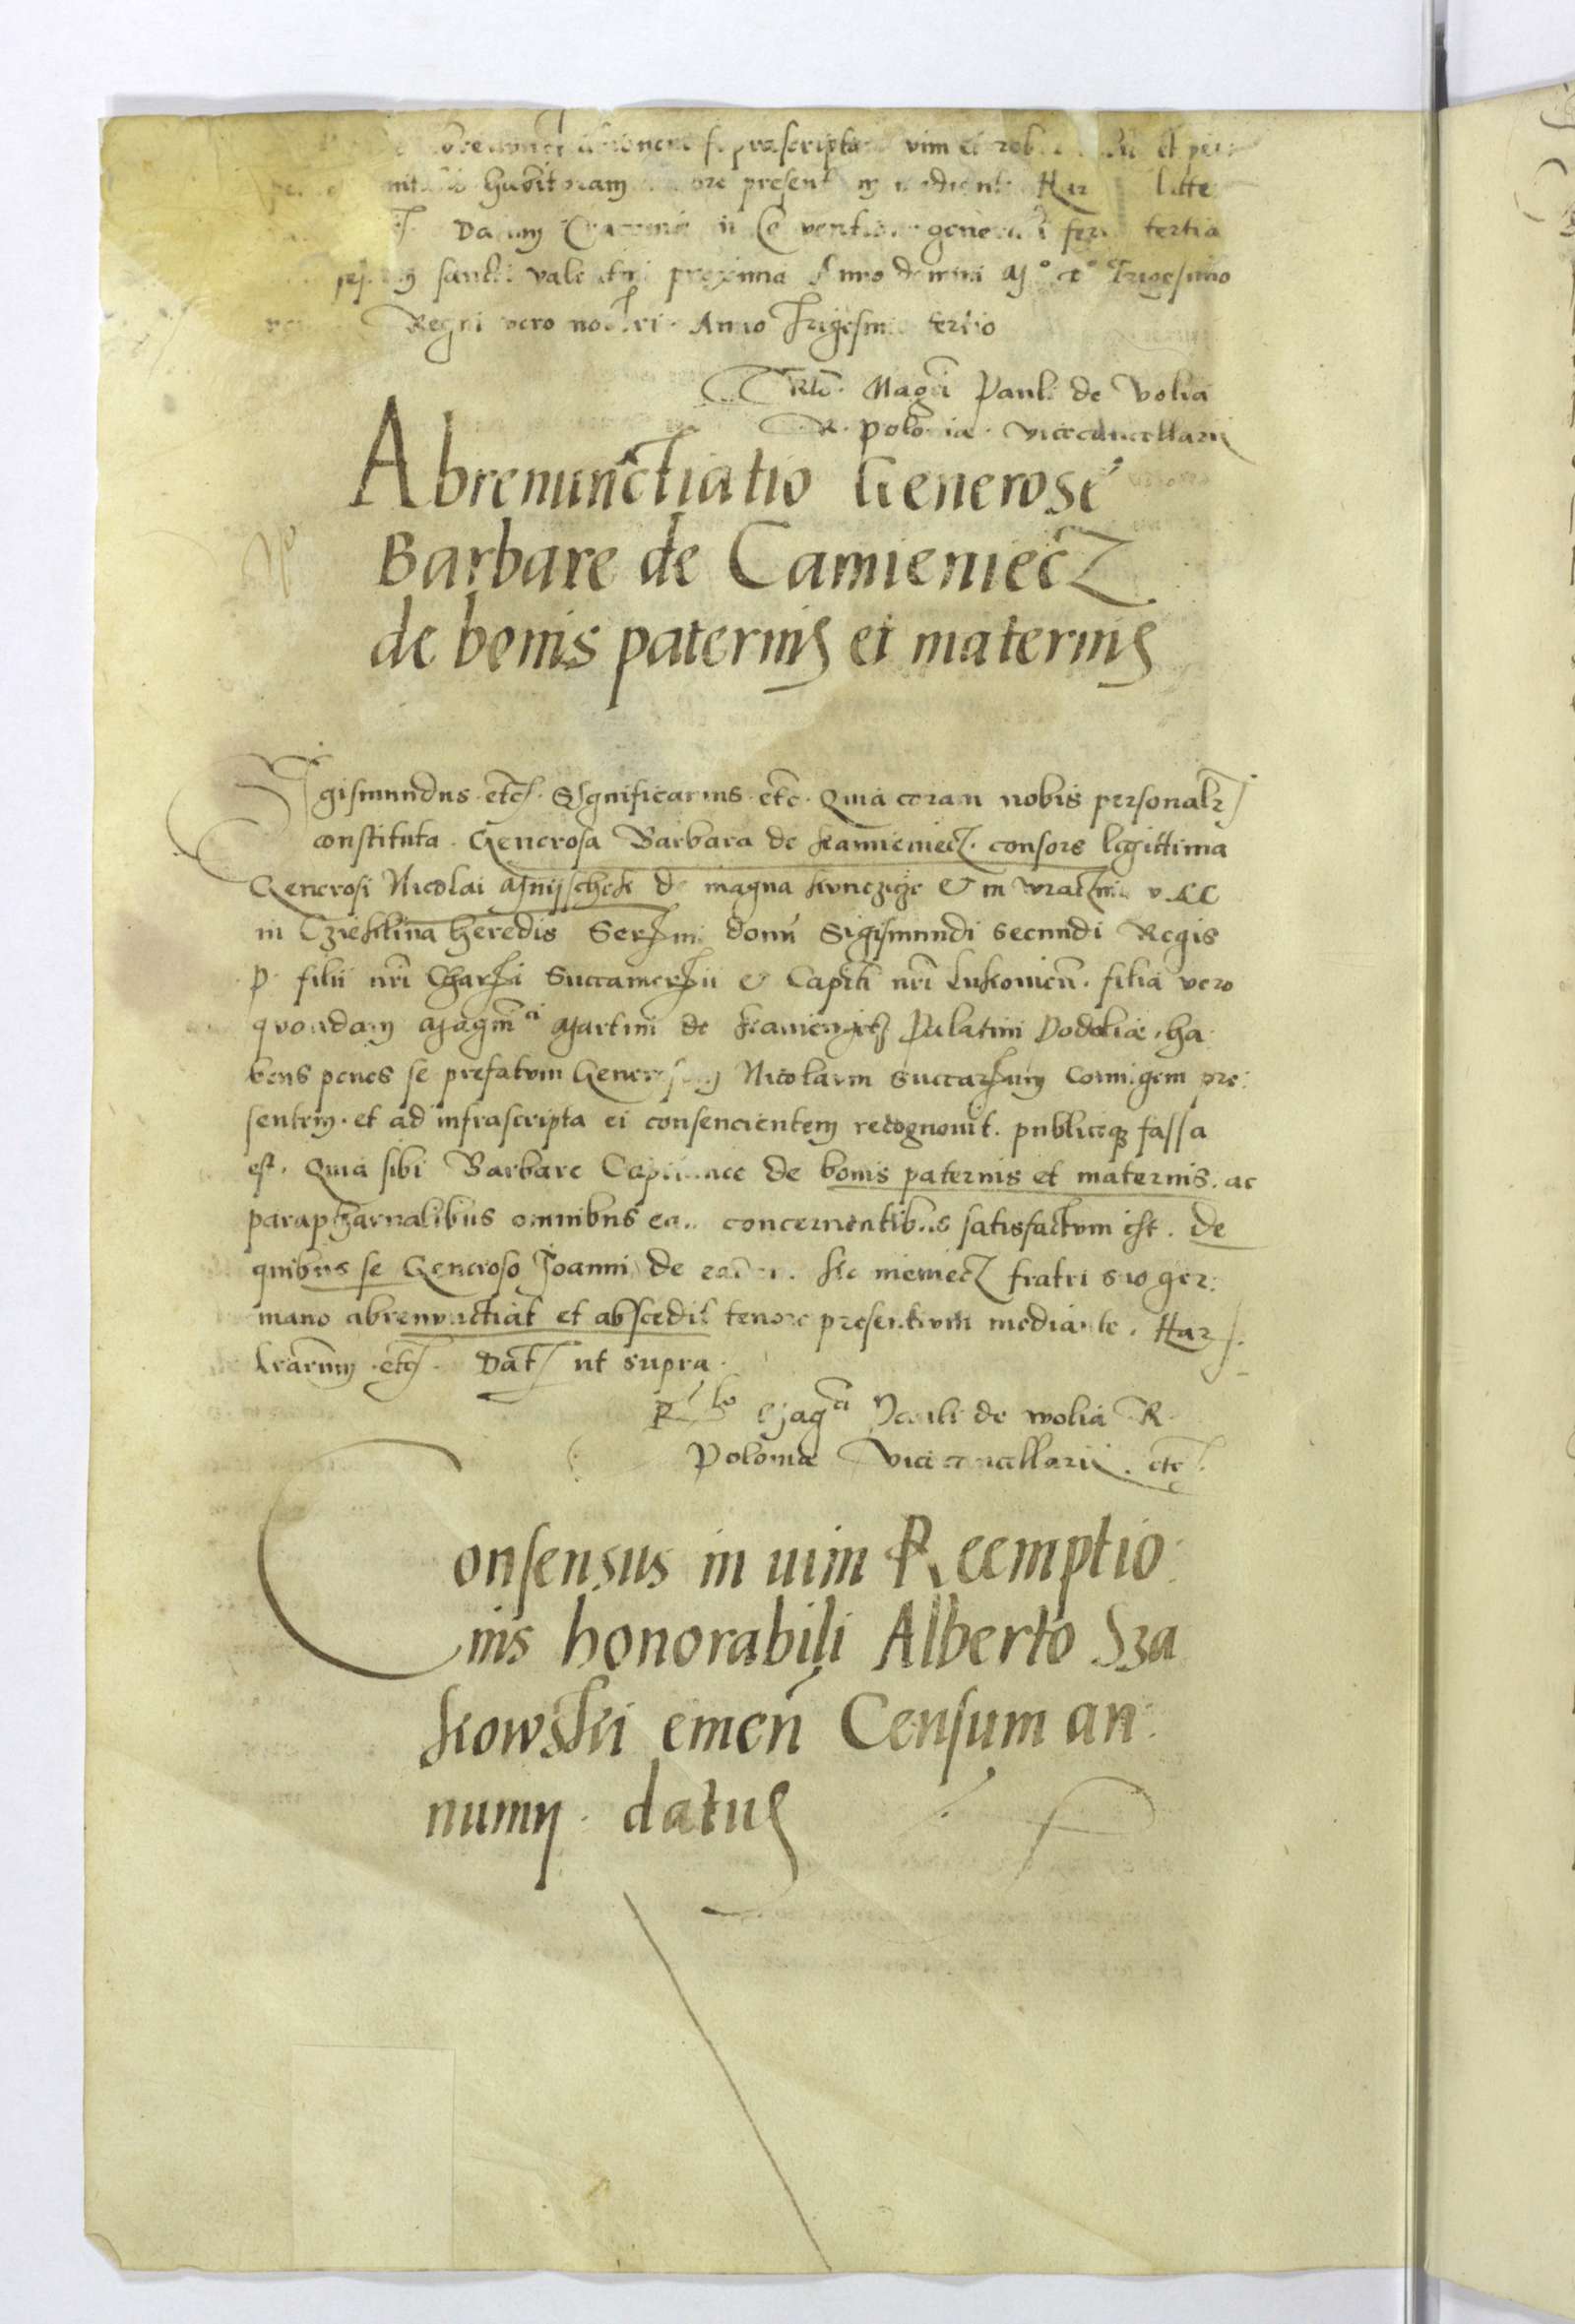 prascripta vim et
habituram present Har litte
Datum Cracoviæ in Conventione generali feria tertia
sancti valentini proxima Anno domini Mº dº Trigesimo
Regni vero nostri Anno Trigesimo tertio
Rlo Magci Pauli de Volia
R. poloniæ vicecancellarii
Abrenunctiatio Generose
Barbare de Camieniecz
de bonis paternis et maternis
Sigismundus etc. Significamus etc. Quia coram nobis personalr
constituta. Generosa Barbara de kamieniecz. consors legittima
Generosi Nicolai Mnijschek de magna kunczicze & in
in Czieklina heredis Sermi domi Sigismundi secundi Regis
P. filii nri Charmi Succamerarii & Capiti nri Lukovien. filia vero
quondam Magnci Martini de kamieniecz Palatini Podoliæ, ha.
bens penes se prefatum Generosum Nicolaum succarium Coniugem pre:
sentem. et ad infrascripta ei consencientem recognovit. publiceque fassa
est. Quia sibi Barbare Capitanee de bonis paternis et maternis. ac
parapharnalibus omnibus eam concernentibus satisfactum est. De
quibus se Generoso Joanni de eadem kamieniecz fratri suo ger:
mano abrenunctiat et abscedit tenore presentium mediante. Har
lrarum etc. Dat ut supra.
Rlo Magci Pauli de wolia R.
Poloniæ Vicecancellarii. etc.
Consensus in uim Reemptio:
nis honorabili Alberto Sza
kowski emen Censum an:
nuum. datus